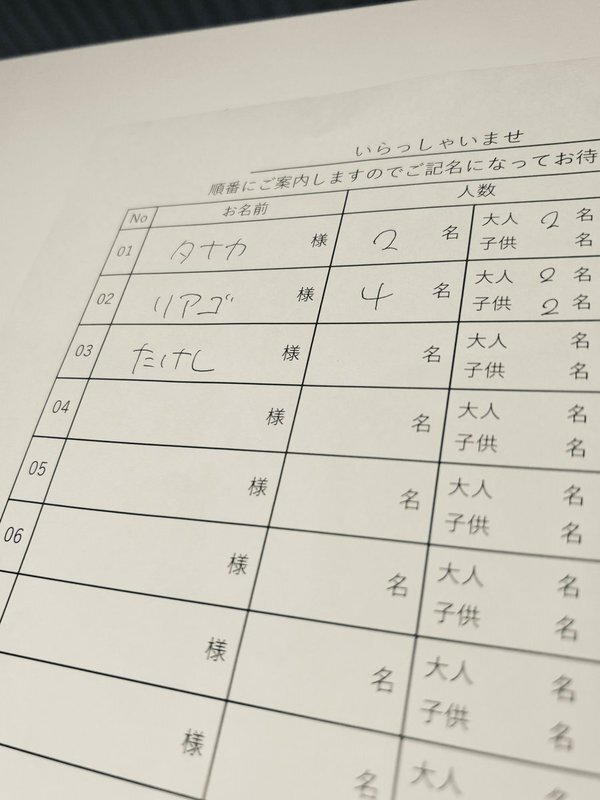 いらっしゃいませ
順番にご案内しますのでご記名になってお待
No お名前 人数
01 タナカ 様 2 名 大人 2 名
子供 名
02 リアゴ 様 4 名 大人 2 名
子供 2 名
03 たけし 様 名 大人 名
子供 名
04 様 名 大人 名
子供 名
05 様 名 大人 名
子供 名
06 様 名 大人 名
子供 名
様 名 大人 名
子供 名
様 名 大人 名